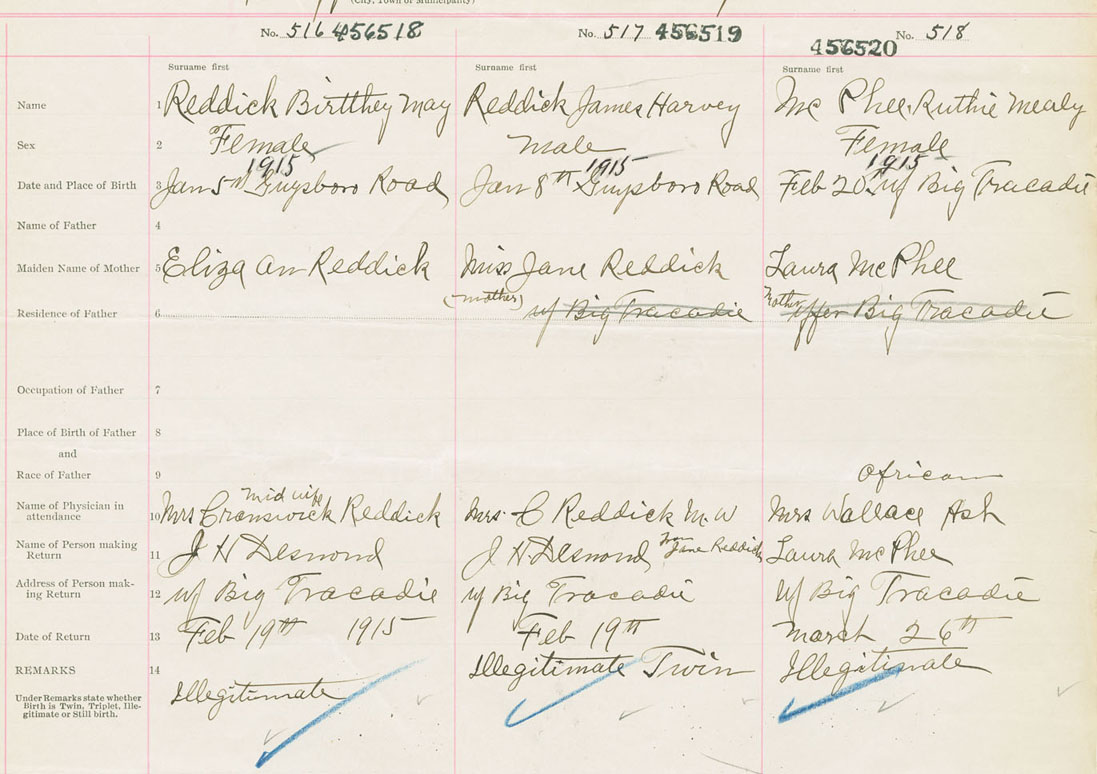 (City, Town or Municipality)
No. 516 456518 No. 517 456519 456520 No. 518
Surname first Surname first Surname first
Name 1 Reddick Birtthey May Reddick James Harvey Mc Phee Ruthie Mealy
Sex 2 Female male Female
1915 1915 1915
Date and Place of Birth 3 Jan 5th Guysboro Road Jan 8th Guysboro Road Feb 20 up Big Tracadie
Name of Father 4
Maiden Name of Mother 5 Eliza an Reddick Miss Jane Reddick Laura McPhee
(mother) Mother
Residence of Father 6 up Big Tracadie upper Big Tracadie
Occupation of Father 7
Place of Birth of Father 8
and
Race of Father 9 African
midwife
Name of Physician in attendance 10 Mrs Cranswick Reddick Mrs. C Reddick M.W Mrs Wallace Ash
Name of Person making Return 11 J H Desmond J H Desmond for Jane Reddick Laura McPhee
Address of Person making Return 12 up Big Tracadie up Big Tracadie up Big Tracadie
Date of Return 13 Feb 19th 1915 Feb 19th march 26th
REMARKS 14 Illegitimate Illegitimate Twin Illegitimate
Under Remarks state whether
Birth is Twin, Triplet, Ille-
gitimate or Still birth.